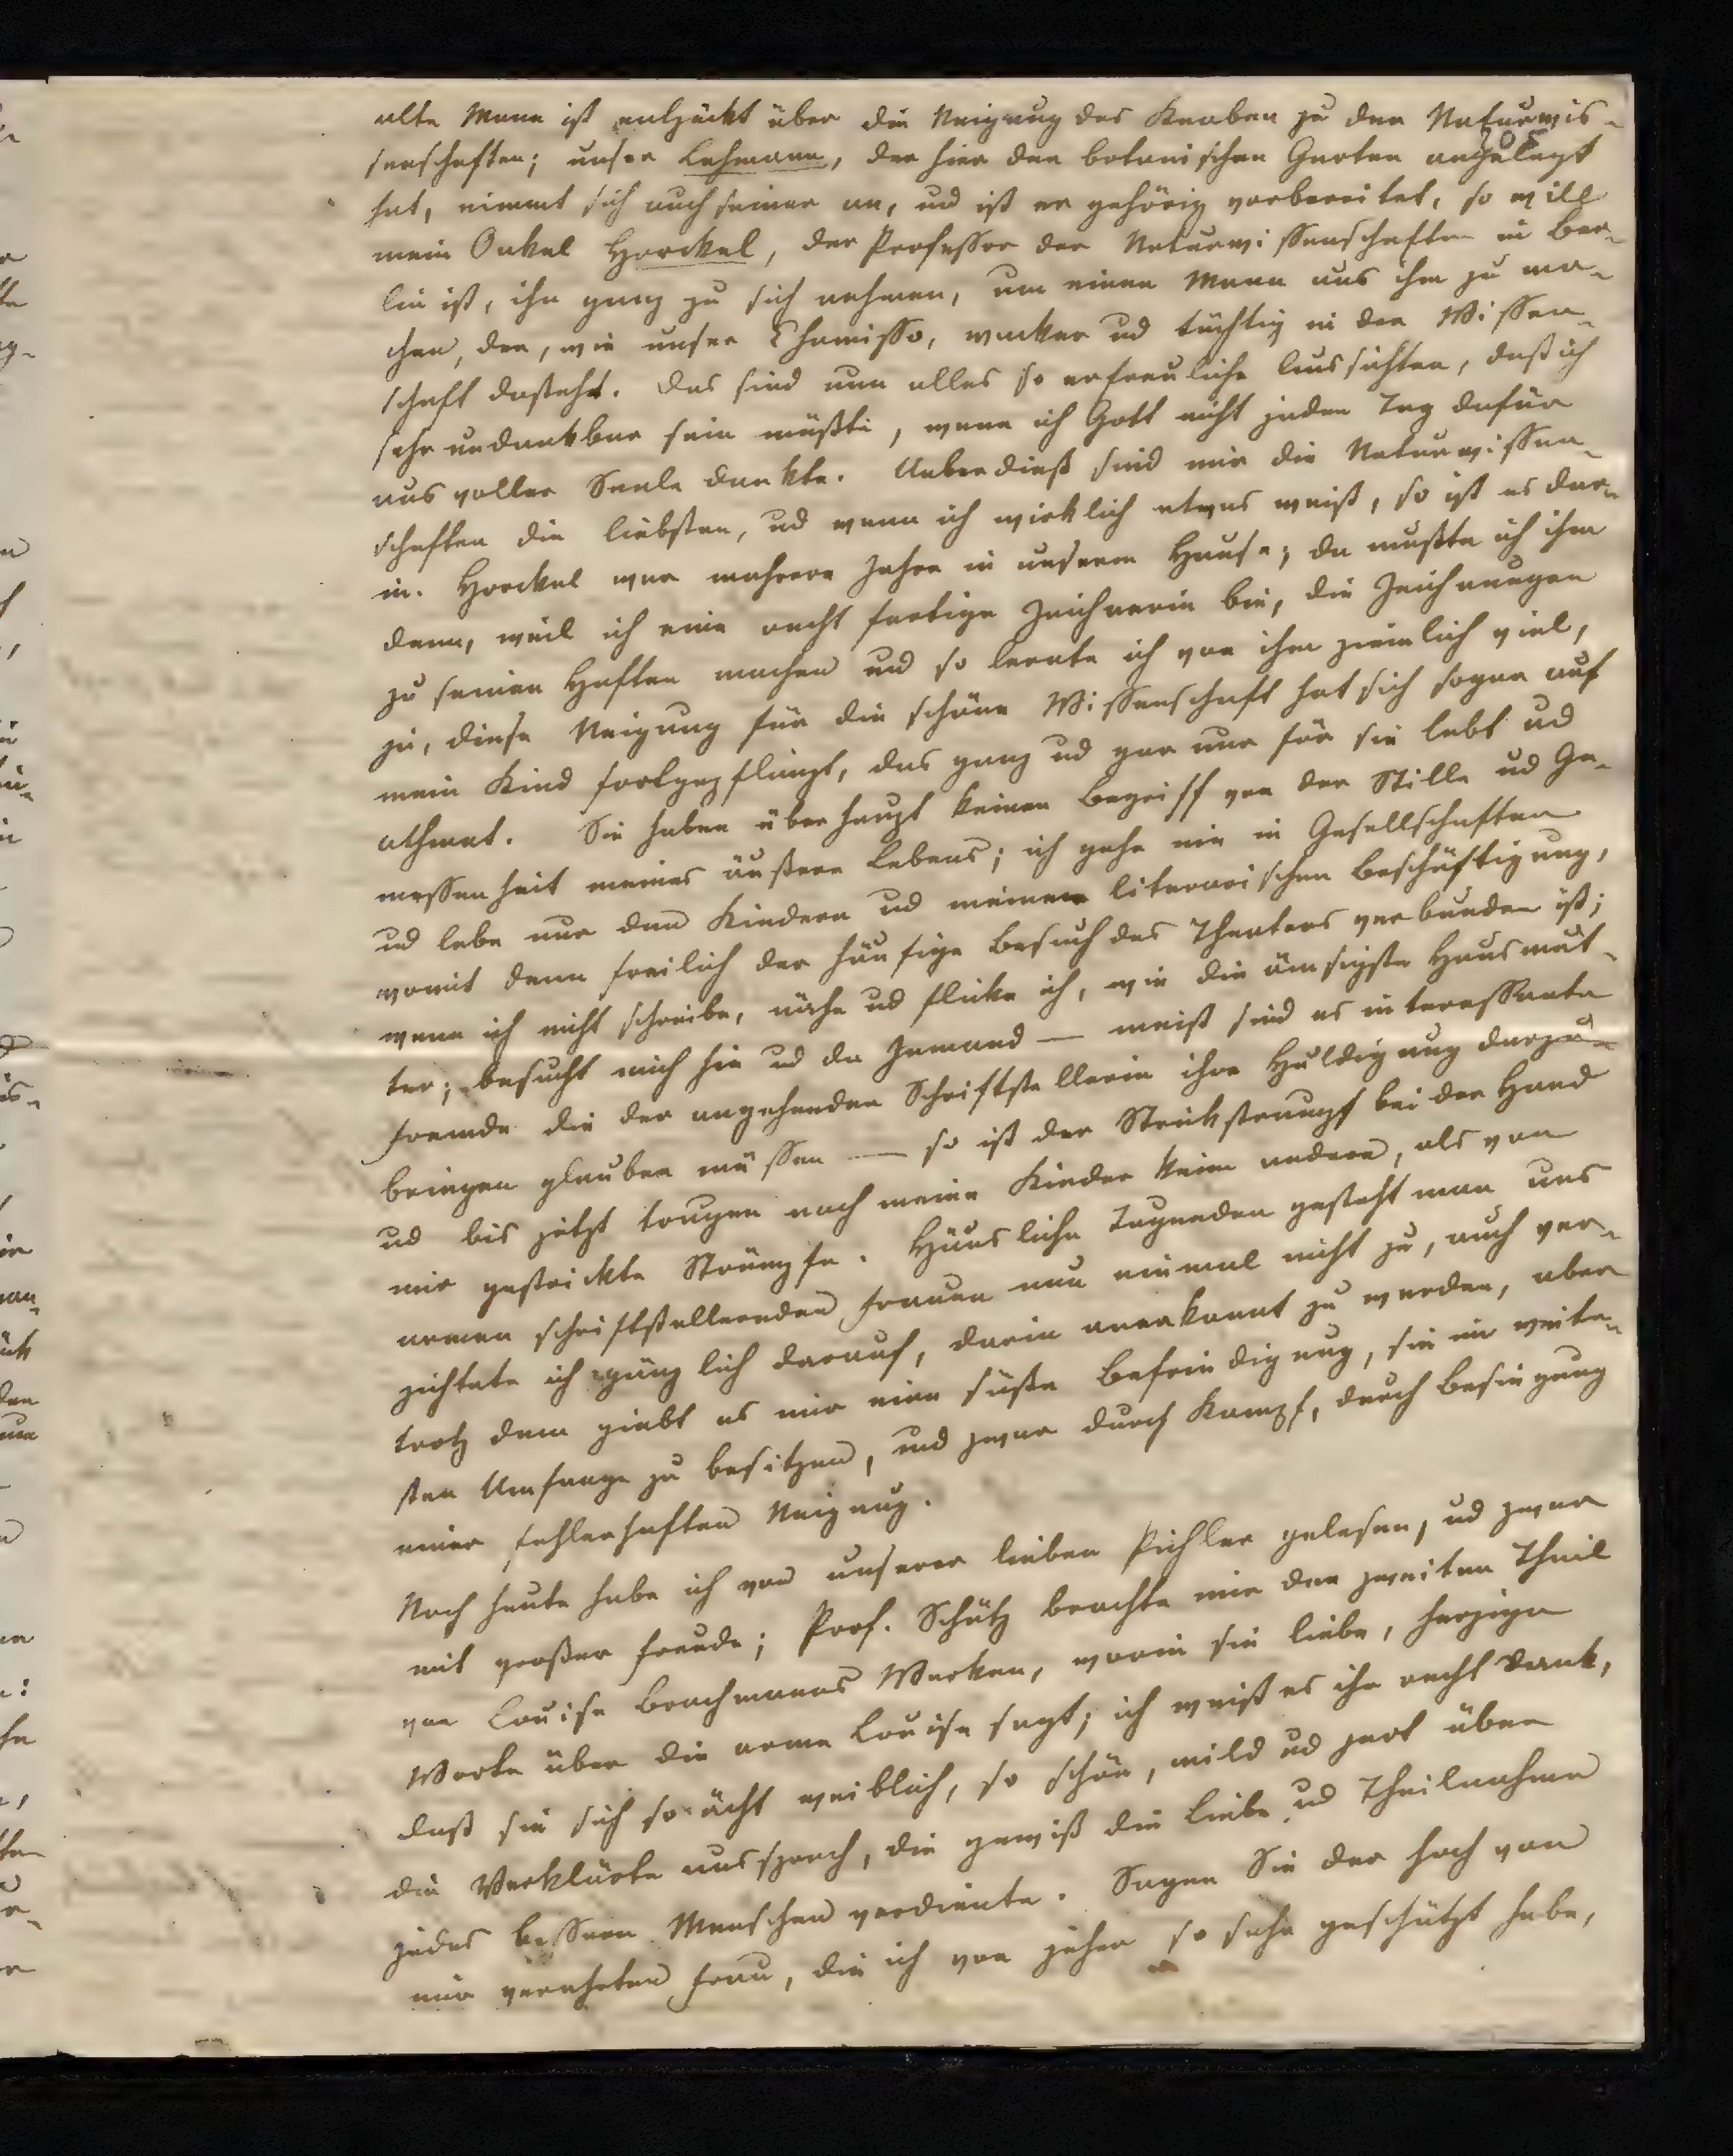 alte Mann ist entzückt über die Neigung des Knaben zu den Naturwis-
senschaften; unser Lehmann, der hier den botanischen Garten angelegt
hat, nimmt sich auch seiner an, und ist er gehörig vorbereitet, so will
mein Onkel Horckel, der Professor der Naturwissenschaften in Ber-
lin ist, ihn ganz zu sich nehmen, um einen Mann aus ihm zu ma-
chen, der, wie unser Chamisso, wacker und tüchtig in der Wissen-
schaft dasteht. Das sind nun alles so erfreuliche Aussichten, daß ich
sehr undankbar sein müßte, wenn ich Gott nicht jeden Tag dafür
aus voller Seele dankte. Ueberdieß sind mir die Naturwissen-
schaften die liebsten, und wenn ich wirklich etwas weiß, so ist es dar-
in. Horckel war mehrere Jahre in unserem Hause; da mußte ich ihm
denn, weil ich eine recht fertige Zeichnerin bin, die Zeichnungen
zu seinen Heften machen und so lernte ich von ihm ziemlich viel,
ja, diese Neigung für die schöne Wissenschaft hat sich sogar auf
mein Kind fortgepflanzt, das ganz und gar nur für sie lebt und
athmet. Sie haben überhaupt keinen Begriff von der Stille und Ge-
messenheit meines äußern Lebens; ich gehe nie in Gesellschaften
und lebe nur den Kindern und meiner literarischen Beschäftigung,
womit denn freilich der häufige Besuch des Theaters verbunden ist;
wenn ich nicht schreibe, nähe und flicke ich, wie die ämsigste Hausmut-
ter; besucht mich hie und da Jemand — meist sind es interessante
Fremde die der angehenden Schriftstellerin ihre Huldigung darzu-
bringen glauben müssen — so ist der Strickstrumpf bei der Hand
und bis jetzt tragen noch meine Kinder keine andern, als von
mir gestrickte Strümpfe. Häusliche Tugenden gesteht man uns
armen schriftstellernden Frauen nun einmal nicht zu, auch ver-
zichtete ich gänzlich darauf, darin anerkannt zu werden, aber
trotz dem giebt es mir eine süße Befriedigung, sie im weite-
sten Umfange zu besitzen, und zwar durch Kampf, durch Besiegung
einer fehlerhaften Neigung.
Noch heute habe ich von unserer lieben Pichler gelesen, und zwar
mit großer Freude; Prof. Schütz brachte mir den zweiten Theil
von Louise Brachmanns Werken, worin sie liebe, herzige
Worte über die arme Louise sagt; ich weiß es ihr recht Dank,
daß sie sich so ächt weiblich, so schön, mild und zart über
die Verklärte aussprach, die gewiß die Liebe und Theilnahme
jedes bessern Menschen verdiente. Sagen Sie der hoch von
mir verehrten Frau, die ich von jeher so sehr geschätzt habe,